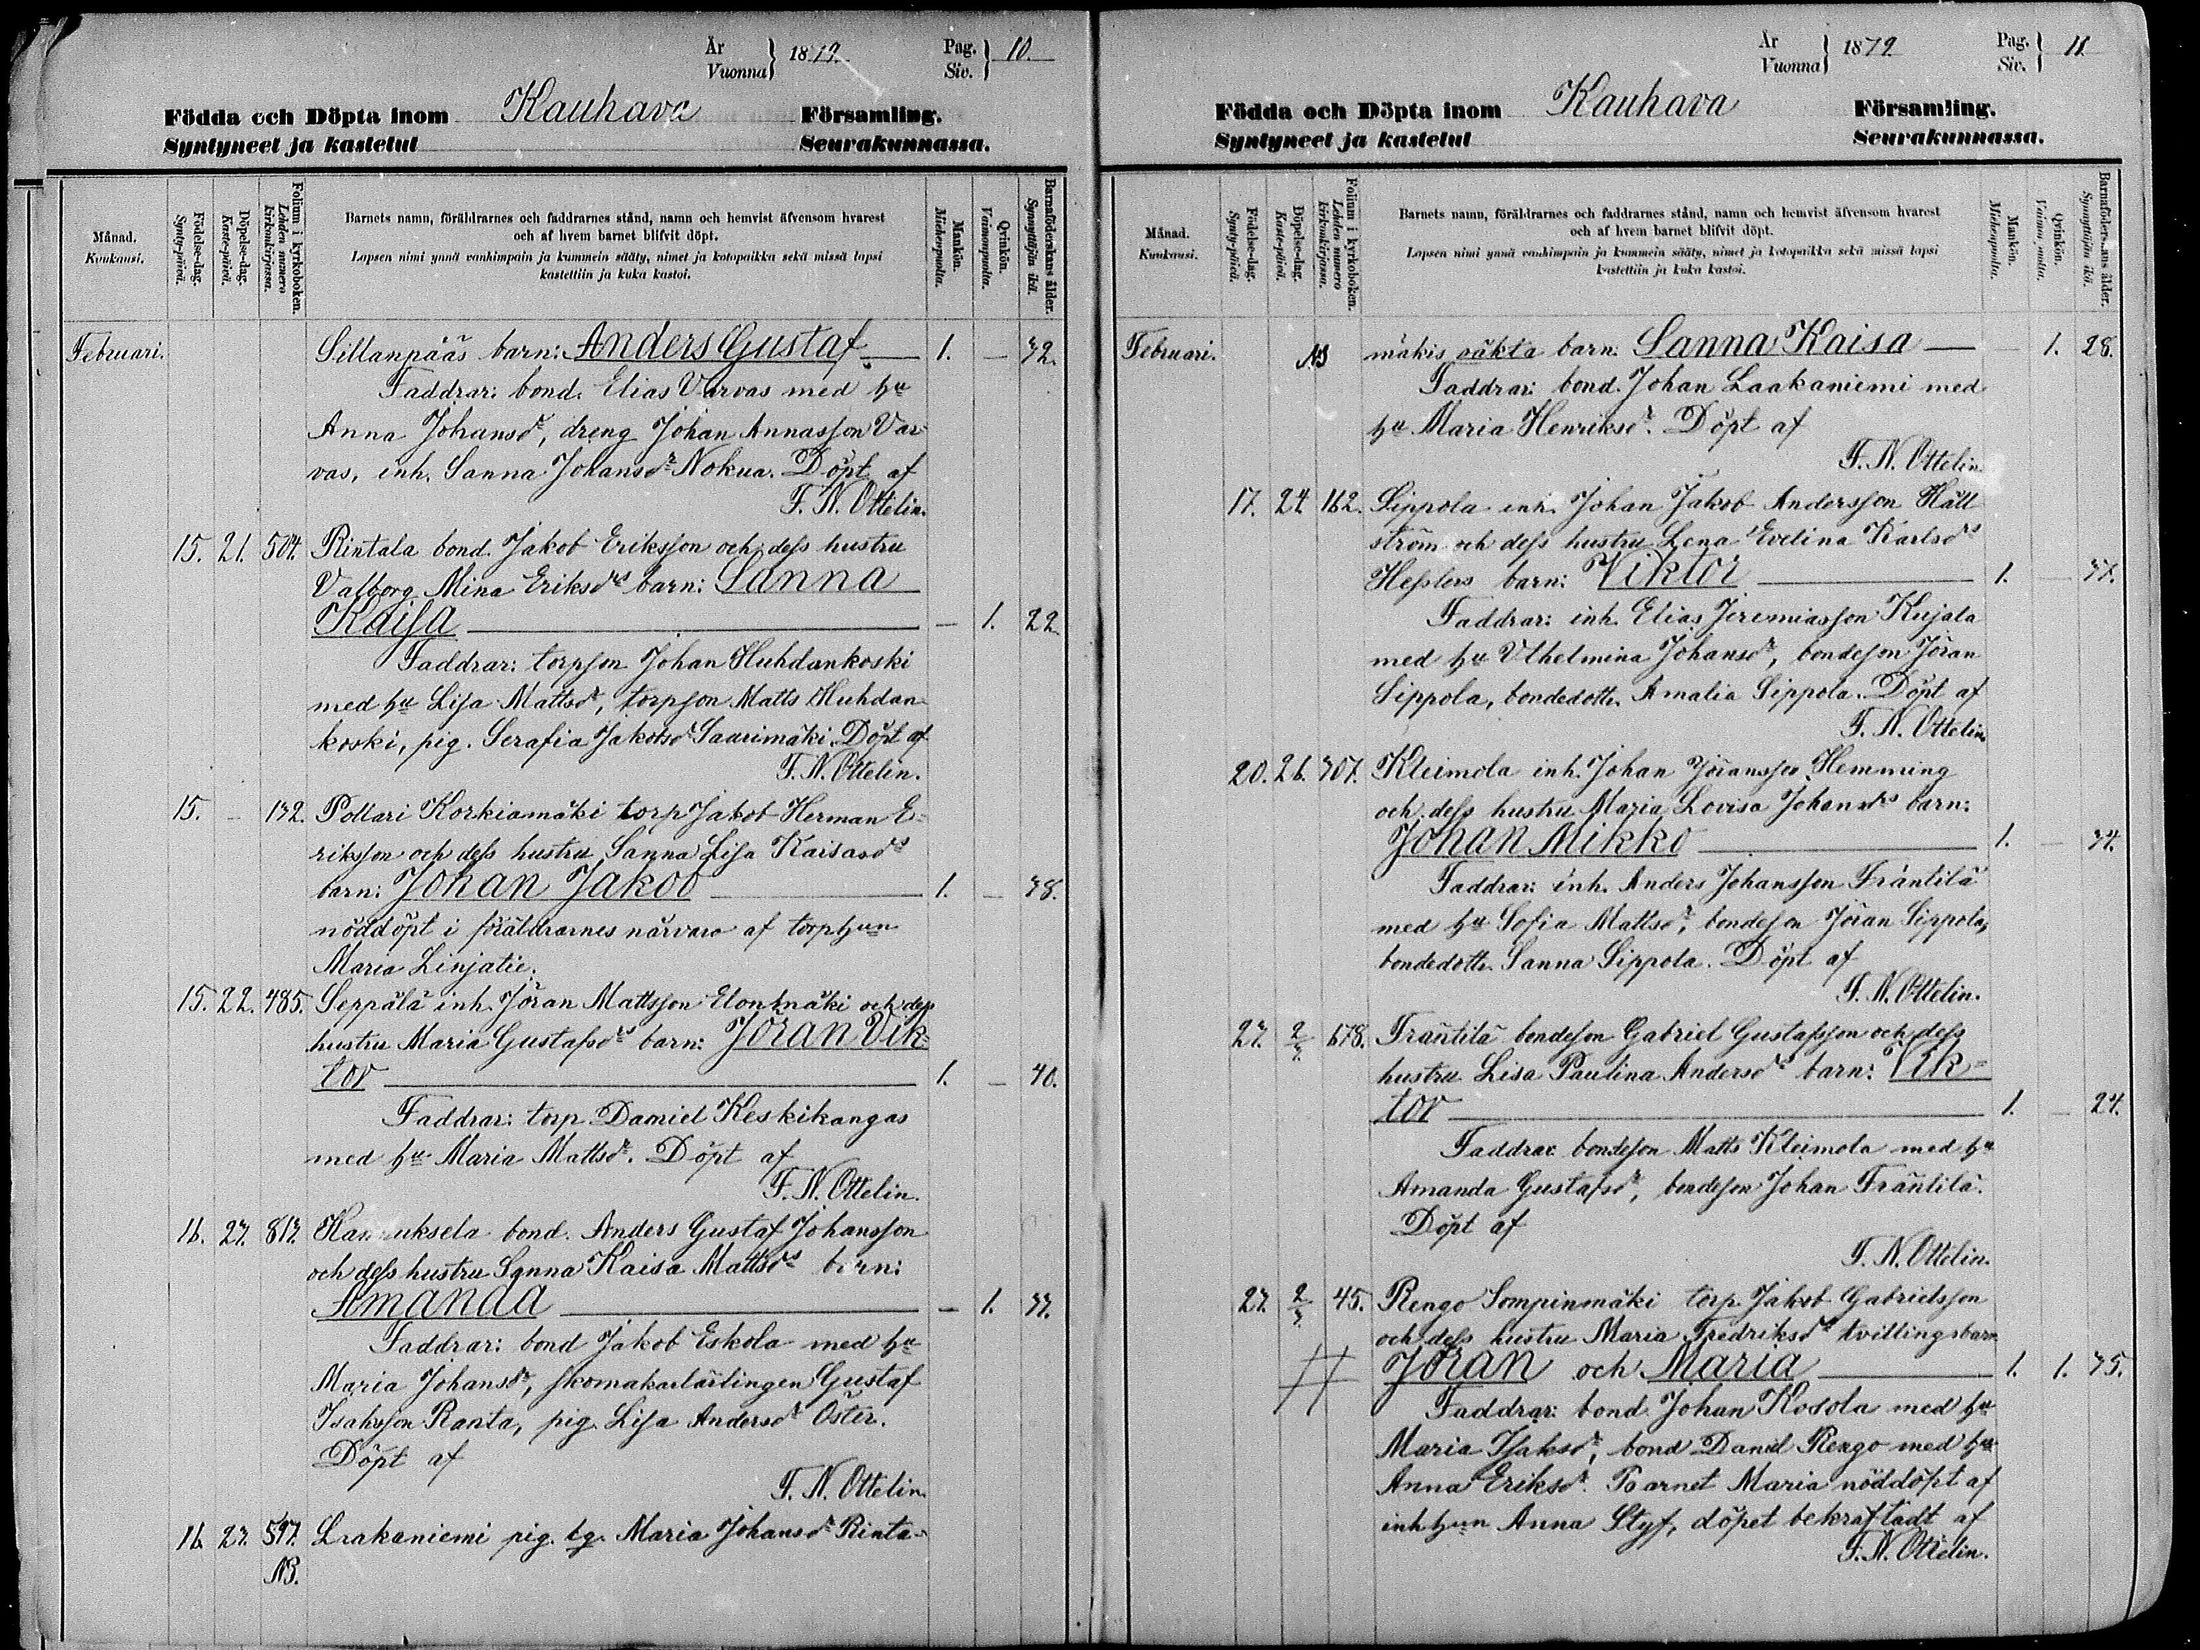 År
Vuonna } 1879. Pag.
Siv. } 10.
Födda och Döpta inom Kauhava Församling.
Syntyneet ja kastetut Seurakunnassa.
Månad.
Kuukausi.
Födelse-dag.
Synty-päivä.
Döpelse-dag.
Kaste-päivä.
Folium i kyrkoboken.
Lehden numero
kirkonkirjassa.
Barnets namn, föräldrarnes och faddrarnes stånd, namn och hemvist äfvensom hvarest
och af hvem barnet blifvit döpt.
Lapsen nimi ynnä vanhimpain ja kummein sääty, nimet ja kotopaikka sekä missä lapsi
kastettiin ja kuka kastoi.
Mankön.
Miehenpuolta.
Qvinkön.
Vaimonpuolta.
Barnaföderskans ålder.
Synnyttäjän ikä.
Februari. Sillanpääs barn: Anders Gustaf 1. — 32.
Faddrar: bond. Elias Varvas med hu
Anna Johansdr, dreng Johan Annasson Var-
vas, inh. Sanna Johansdr Nokua. Döpt af
F. N. Ottelin.
15. 21. 504. Rintala bond. Jakob Eriksson och dess hustru
Valborg Mina Eriksdrs barn: Sanna
Kaisa — 1. 22.
Faddrar: torpson Johan Huhdankoski
med hu Lisa Mattsdr, torpson Matts Huhdan-
koski, pig. Serafia Jakobsdr Saarimäki. Döpt af
F. N. Ottelin.
15. — 132. Pollari Korkiamäki torp Jakob Herman E-
riksson och dess hustru Sanna Lisa Kaisasdrs
barn: Johan Jakob 1. — 38.
nöddöpt i föräldrarnes närvaro af torphun
Maria Linjatie.
15. 22. 485. Seppälä inh. Jöran Mattsson Elonmäki och dess
hustru Maria Gustafsdrs barn: Jöran Vik-
tor 1. — 40.
Faddrar: torp. Daniel Keskikangas
med hu Maria Mattsdr. Döpt af
F. N. Ottelin.
16. 23. 813. Hannuksela bond. Anders Gustaf Johansson
och dess hustru Sanna Kaisa Mattsdrs barn:
Amanda — 1. 33.
Faddrar: bond Jakob Eskola med hu
Maria Johansdr, skomakarlärlingen Gustaf
Isaksson Ranta, pig. Lisa Andersdr Öster.
Döpt af
F. N. Ottelin.
16. 23. 597. Laakaniemi pig. tg. Maria Johansdr Rinta-
NB.
År
Vuonna } 1879. Pag.
Siv. } 11
Födda och Döpta inom Kauhava Församling.
Syntyneet ja kastetut Seurakunnassa.
Månad.
Kuukausi.
Födelse-dag.
Synty-päivä.
Döpelse-dag.
Kaste-päivä.
Folium i kyrkoboken.
Lehden numero
kirkonkirjassa.
Barnets namn, föräldrarnes och faddrarnes stånd, namn och hemvist äfvensom hvarest
och af hvem barnet blifvit döpt.
Lapsen nimi ynnä vanhimpain ja kummein sääty, nimet ja kotopaikka sekä missä lapsi
kastettiin ja kuka kastoi.
Mankön.
Miehenpuolta.
Qvinkön.
Vaimonpuolta.
Barnaföderskans ålder.
Synnyttäjän ikä.
Februari. NB mäkis oäkta barn: Sanna Kaisa — 1. 28.
Faddrar: bond. Johan Laakaniemi med
hu Maria Henriksdr. Döpt af
F. N. Ottelin.
17. 24. 162. Sippola inh. Johan Jakob Andersson Häll-
ström och dess hustru Lena Evelina Karlsdrs
Hesslers barn: Viktor 1. — 37.
Faddrar: inh. Elias Jeremiasson Kujala
med hu Vilhelmina Johansdr, bondeson Jöran
Sippola, bondedottr. Amalia Sippola. Döpt af
F. N. Ottelin.
20. 26. 307. Kleimola inh. Johan Jöransson Hemming
och dess hustru Maria Lovisa Johansdrs barn:
Johan Mikko 1. — 34.
Faddrar: inh. Anders Johansson Fräntilä
med hu Sofia Mattsdr, bondeson Jöran Sippola,
bondedottr. Sanna Sippola. Döpt af
F. N. Ottelin.
23. 2/3. 678. Fräntilä bondeson Gabriel Gustafsson och dess
hustru Lisa Paulina Andersdrs barn: Vik-
tor 1. — 24.
Faddrar: bondeson Matts Kleimola med hu
Amanda Gustafsdr, bondeson Johan Fräntilä.
Döpt af
F. N. Ottelin.
23. 2/3. 45. Rengo Sompinmäki torp. Jakob Gabrielsson
och dess hustru Maria Fredriksdrs tvillingsbarn
Jöran och Maria 1. 1. 35.
Faddrar: bond. Johan Kosola med hu
Maria Isaksdr, bond Daniel Rengo med hu
Anna Eriksdr. Barnet Maria nöddöpt af
inhhun Anna Styf, döpet bekräftadt af
F. N. Ottelin.